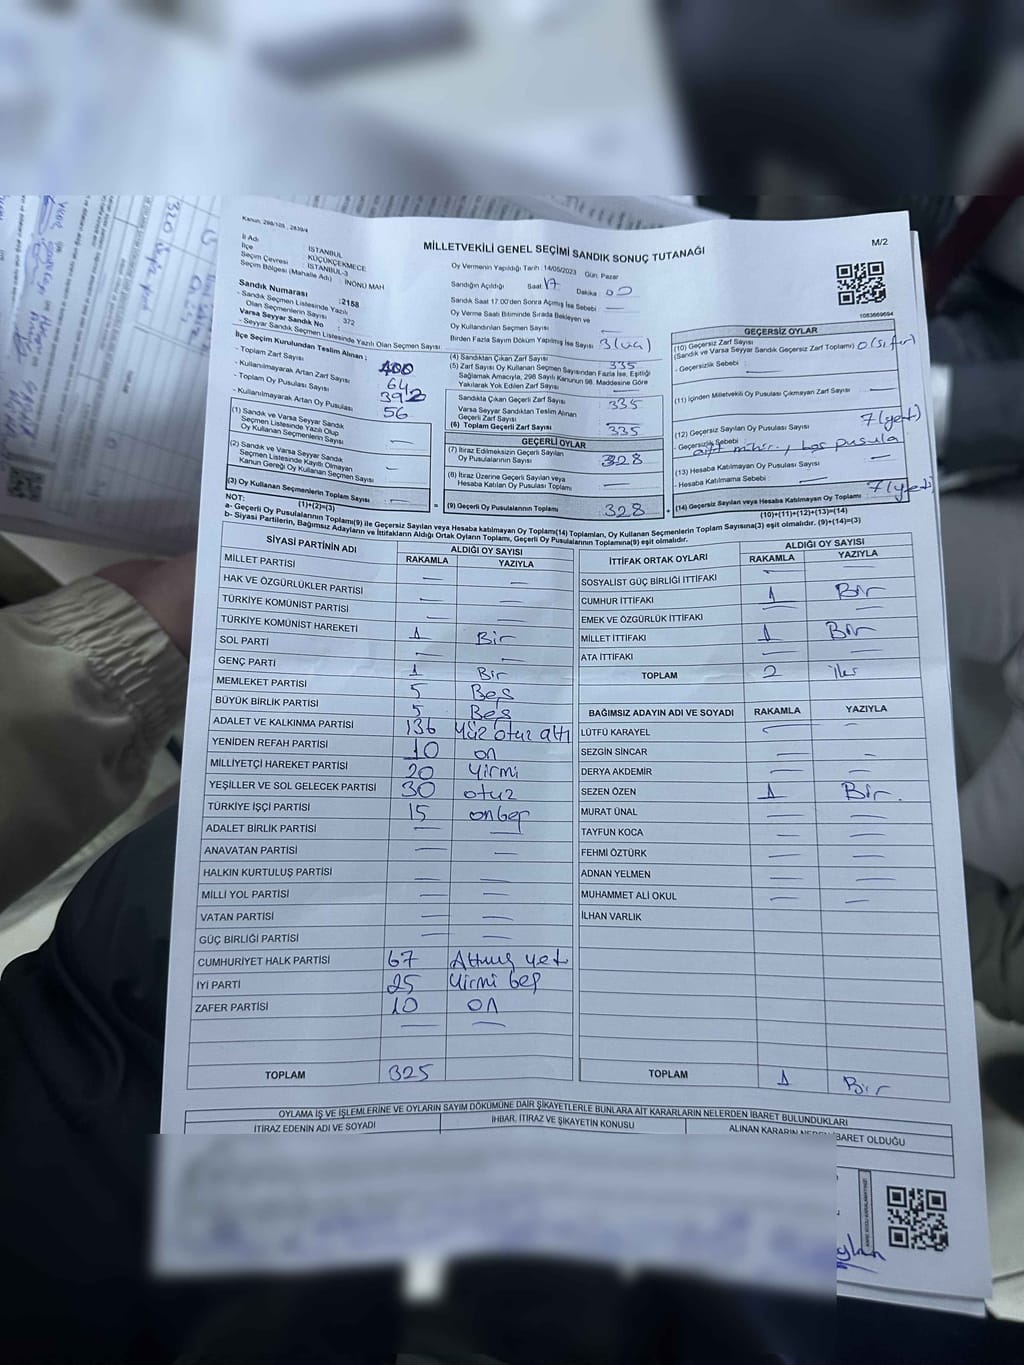 Kanun: 298/105 , 2839/4
MİLLETVEKİLİ GENEL SEÇİMİ SANDIK SONUÇ TUTANAĞI
M/2
İl Adı : İSTANBUL
İlçe : KÜÇÜKÇEKMECE
Seçim Çevresi : İSTANBUL-3
Seçim Bölgesi (Mahalle Adı) : İNÖNÜ MAH
Sandık Numarası :2158
- Sandık Seçmen Listesinde Yazılı
Olan Seçmenlerin Sayısı : 372
Varsa Seyyar Sandık No
- Seyyar Sandık Seçmen Listesinde Yazılı Olan Seçmen Sayısı:
İlçe Seçim Kurulundan Teslim Alınan ;
- Toplam Zarf Sayısı 400
- Kullanılmayarak Artan Zarf Sayısı 64
- Toplam Oy Pusulası Sayısı 392
- Kullanılmayarak Artan Oy Pusulası 56
(1) Sandık ve Varsa Seyyar Sandık
Seçmen Listesinde Yazılı Olup
Oy Kullanan Seçmenlerin Sayısı —
(2) Sandık ve Varsa Seyyar Sandık
Seçmen Listesinde Kayıtlı Olmayan
Kanun Gereği Oy Kullanan Seçmen Sayısı —
(3) Oy Kullanan Seçmenlerin Toplam Sayısı —
(1)+(2)=(3)
Oy Vermenin Yapıldığı Tarih : 14/05/2023 Gün: Pazar
Sandığın Açıldığı Saat 17 Dakika 00
Sandık Saat 17:00'den Sonra Açılmış İse Sebebi —
Oy Verme Saati Bitiminde Sırada Bekleyen ve
Oy Kullandırılan Seçmen Sayısı —
Birden Fazla Sayım Döküm Yapılmış İse Sayısı 3 (üç)
(4) Sandıktan Çıkan Zarf Sayısı 335
(5) Zarf Sayısı Oy Kullanan Seçmen Sayısından Fazla İse, Eşitliği
Sağlamak Amacıyla, 298 Sayılı Kanunun 98. Maddesine Göre
Yakılarak Yok Edilen Zarf Sayısı —
Sandıkta Çıkan Geçerli Zarf Sayısı 335
Varsa Seyyar Sandıktan Teslim Alınan
Geçerli Zarf Sayısı —
(6) Toplam Geçerli Zarf Sayısı 335
GEÇERLİ OYLAR
(7) İtiraz Edilmeksizin Geçerli Sayılan
Oy Pusulalarının Sayısı 328
(8) İtiraz Üzerine Geçerli Sayılan veya
Hesaba Katılan Oy Pusulası Toplamı —
(9) Geçerli Oy Pusulalarının Toplamı 328
1083669694
GEÇERSİZ OYLAR
(10) Geçersiz Zarf Sayısı
(Sandık ve Varsa Seyyar Sandık Geçersiz Zarf Toplamı) 0 (sıfır)
- Geçersizlik Sebebi : —
(11) İçinden Milletvekili Oy Pusulası Çıkmayan Zarf Sayısı —
(12) Geçersiz Sayılan Oy Pusulası Sayısı 7 (yedi)
- Geçersizlik Sebebi çift mühür, boş pusula
(13) Hesaba Katılmayan Oy Pusulası Sayısı —
- Hesaba Katılmama Sebebi : —
(14) Geçersiz Sayılan veya Hesaba Katılmayan Oy Toplamı 7 (yedi)
(10)+(11)+(12)+(13)=(14)
NOT:
a- Geçerli Oy Pusulalarının Toplamı(9) ile Geçersiz Sayılan veya Hesaba katılmayan Oy Toplamı(14) Toplamları, Oy Kullanan Seçmenlerin Toplam Sayısına(3) eşit olmalıdır. (9)+(14)=(3)
b- Siyasi Partilerin, Bağımsız Adayların ve İttifakların Aldığı Ortak Oyların Toplamı, Geçerli Oy Pusulalarının Toplamına(9) eşit olmalıdır.
SİYASİ PARTİNİN ADI ALDIĞI OY SAYISI
RAKAMLA YAZIYLA
MİLLET PARTİSİ — —
HAK VE ÖZGÜRLÜKLER PARTİSİ — —
TÜRKİYE KOMÜNİST PARTİSİ — —
TÜRKİYE KOMÜNİST HAREKETİ 1 Bir
SOL PARTİ — —
GENÇ PARTİ 1 Bir
MEMLEKET PARTİSİ 5 Beş
BÜYÜK BİRLİK PARTİSİ 5 Beş
ADALET VE KALKINMA PARTİSİ 136 Yüz otuz altı
YENİDEN REFAH PARTİSİ 10 on
MİLLİYETÇİ HAREKET PARTİSİ 20 Yirmi
YEŞİLLER VE SOL GELECEK PARTİSİ 30 otuz
TÜRKİYE İŞÇİ PARTİSİ 15 onbeş
ADALET BİRLİK PARTİSİ — —
ANAVATAN PARTİSİ — —
HALKIN KURTULUŞ PARTİSİ — —
MİLLİ YOL PARTİSİ — —
VATAN PARTİSİ — —
GÜÇ BİRLİĞİ PARTİSİ — —
CUMHURİYET HALK PARTİSİ 67 Altmış yedi
İYİ PARTİ 25 Yirmi beş
ZAFER PARTİSİ 10 on
— —
TOPLAM 325
İTTİFAK ORTAK OYLARI ALDIĞI OY SAYISI
RAKAMLA YAZIYLA
SOSYALİST GÜÇ BİRLİĞİ İTTİFAKI —
CUMHUR İTTİFAKI 1 Bir
EMEK VE ÖZGÜRLÜK İTTİFAKI — —
MİLLET İTTİFAKI 1 Bir
ATA İTTİFAKI — —
TOPLAM 2 iki
BAĞIMSIZ ADAYIN ADI VE SOYADI RAKAMLA YAZIYLA
LÜTFÜ KARAYEL — —
SEZGİN SİNCAR — —
DERYA AKDEMİR — —
SEZEN ÖZEN 1 Bir.
MURAT ÜNAL — —
TAYFUN KOCA — —
FEHMİ ÖZTÜRK — —
ADNAN YELMEN — —
MUHAMMET ALİ OKUL — —
İLHAN VARLIK
TOPLAM 1 Bir
OYLAMA İŞ VE İŞLEMLERİNE VE OYLARIN SAYIM DÖKÜMÜNE DAİR ŞİKAYETLERLE BUNLARA AİT KARARLARIN NELERDEN İBARET BULUNDUKLARI
İTİRAZ EDENİN ADI VE SOYADI İHBAR, İTİRAZ VE ŞİKAYETİN KONUSU ALINAN KARARIN NEDEN İBARET OLDUĞU